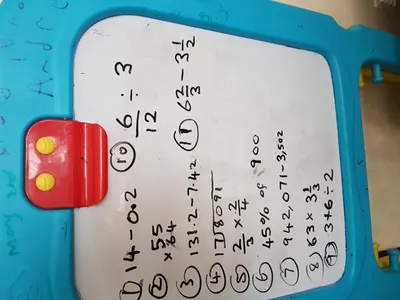 ① 14 - 0.2
② 55
× 64
③ 131.2 - 7.42
④ 17 8091
⑤ 2/3 × 2/4
⑥ 45% of 900
⑦ 942,071 - 3,502
⑧ 63 × 3 1/3
⑨ 3 + 6 ÷ 2
⑩ 6/12 ÷ 3
⑪ 6 2/3 - 3 1/2